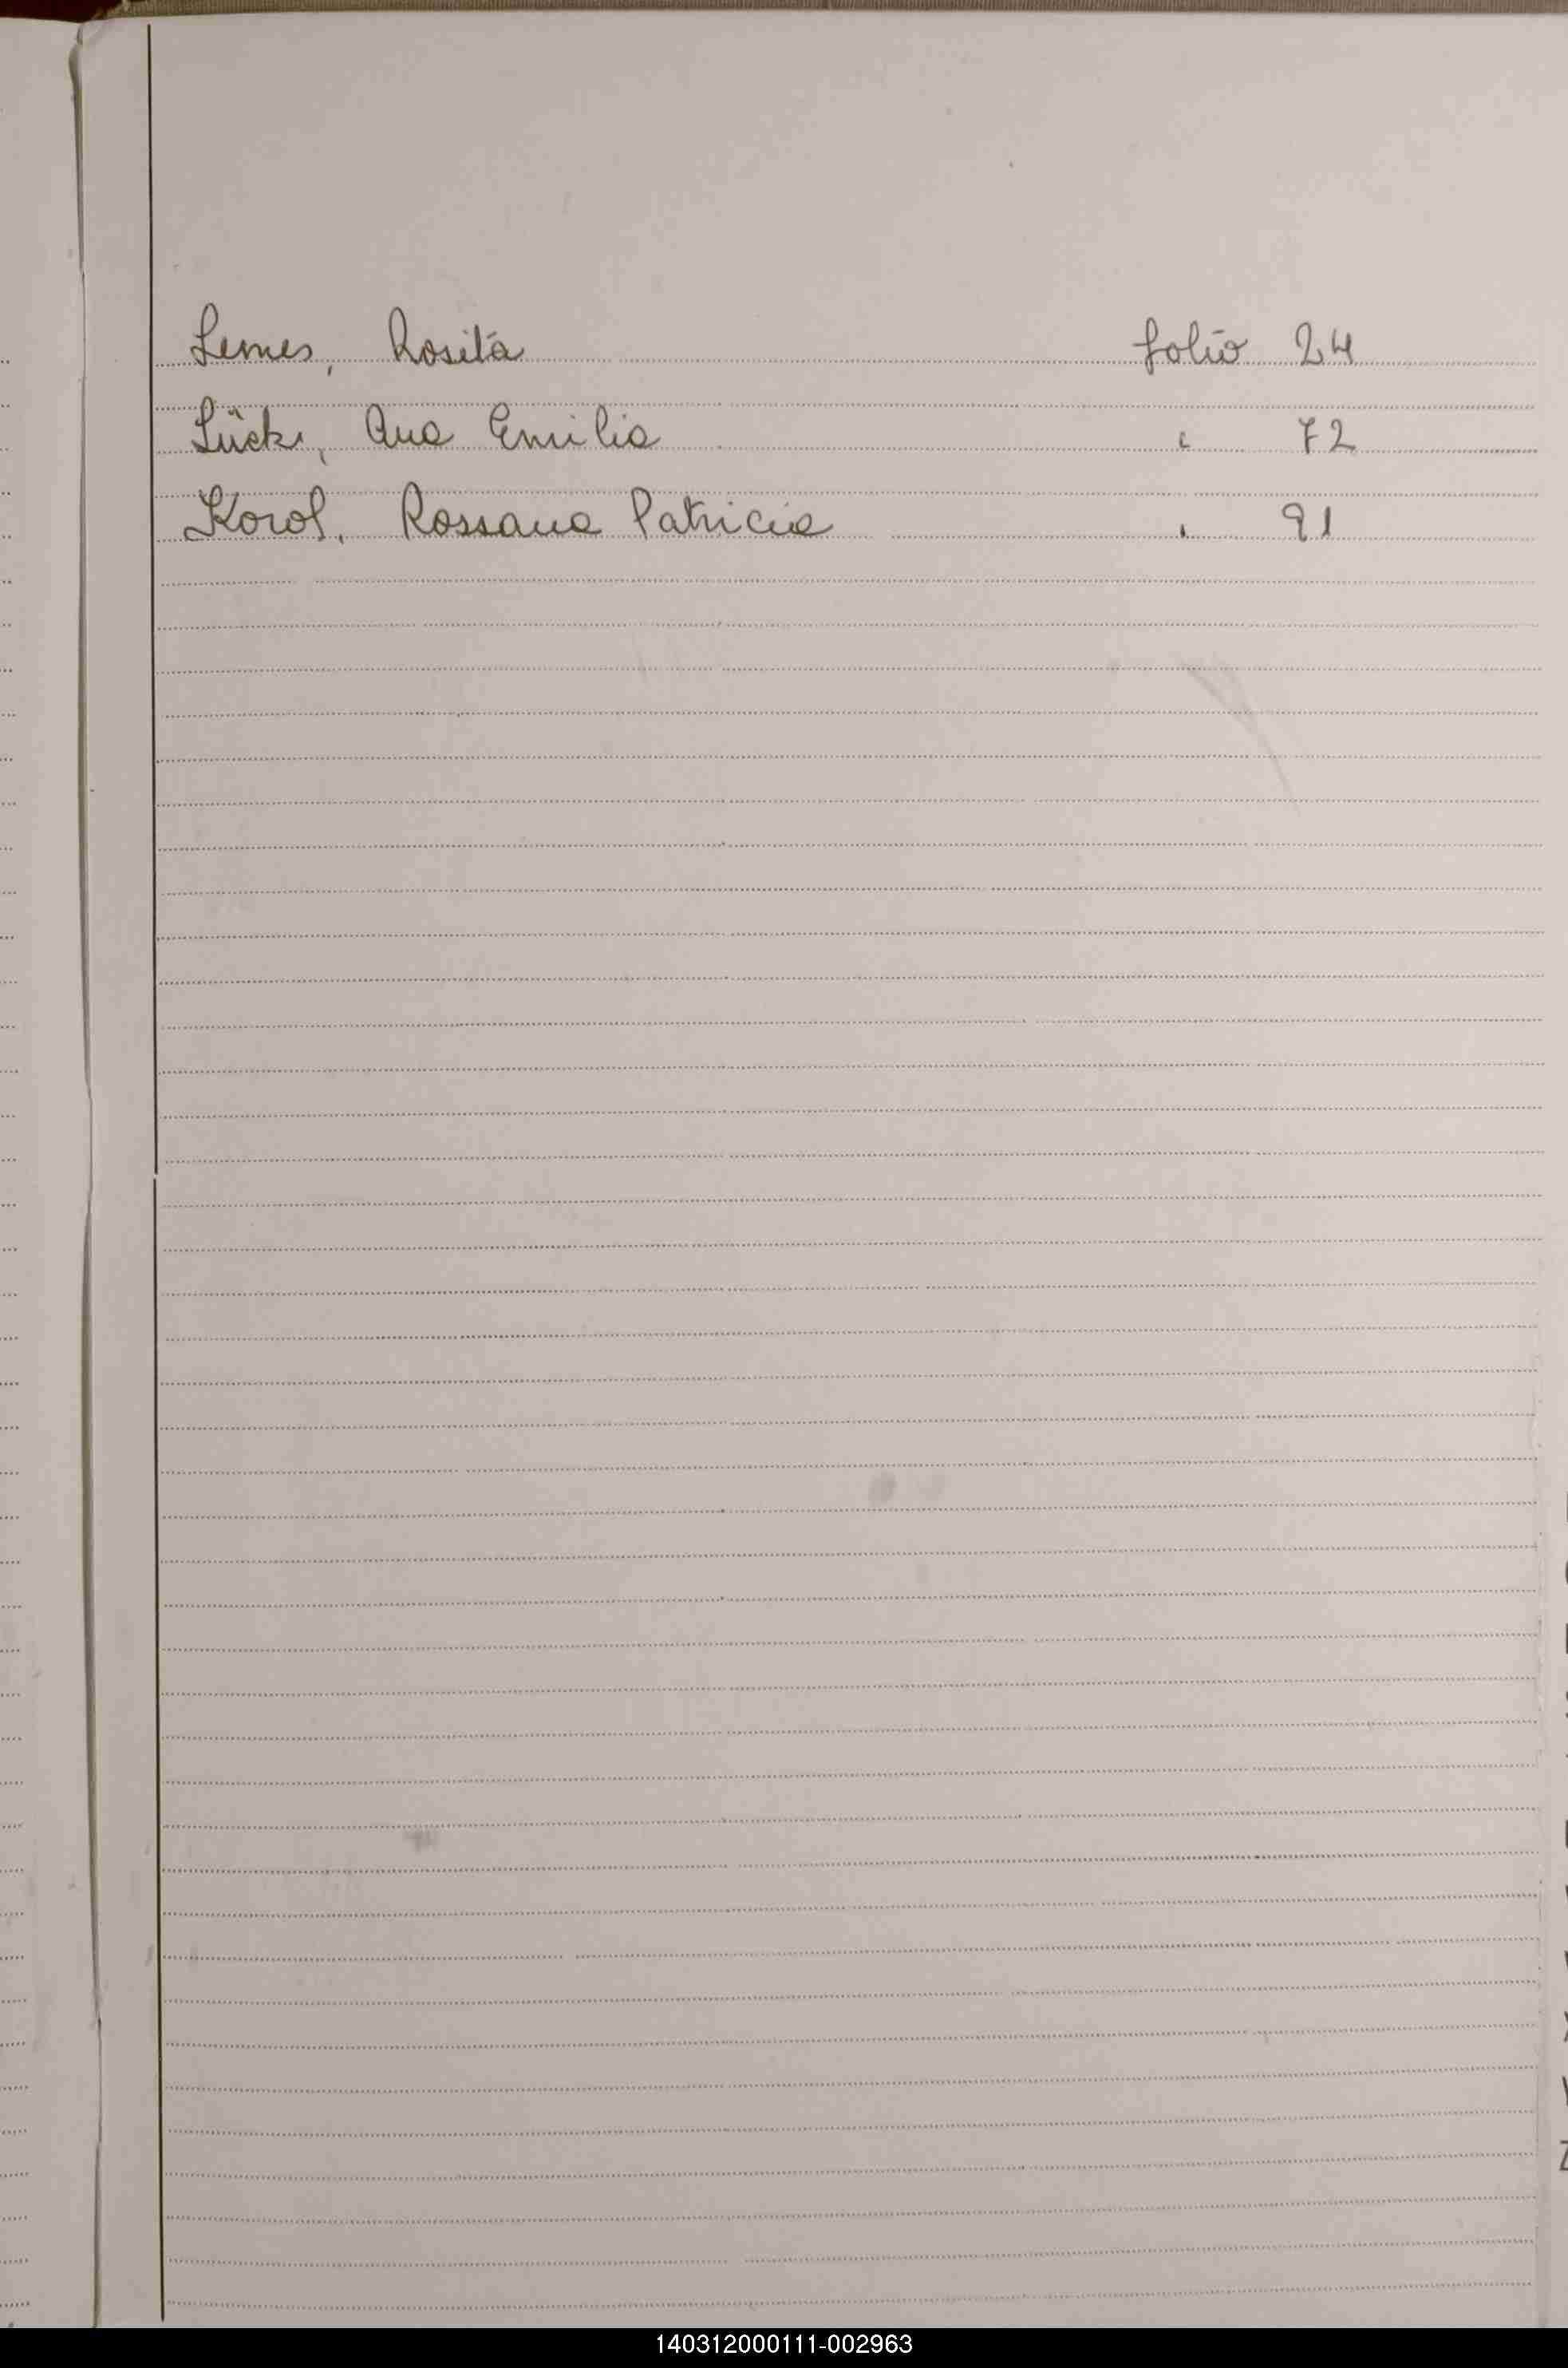 Lemes, Rosita folio 24
Lück, Ana Emilia " 72
Korol, Rossana Patricia " 91
140312000111-002963